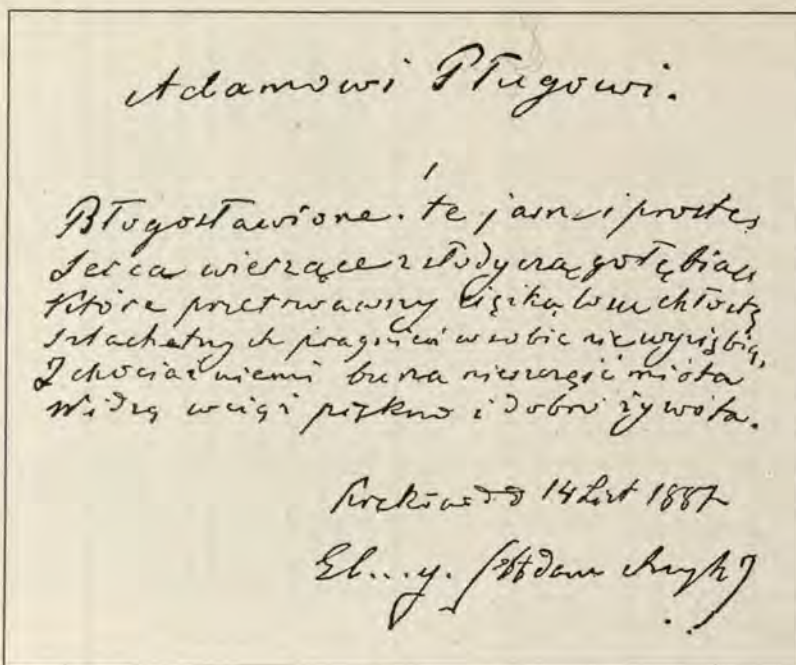 Adamowi Pługowi.
Błogosławione te jasne i proste,
Serca wierzące z słodyczą gołębią,
Które przetrwawszy ciężką losu chłostę
Szlachetnych pragnień w sobie nie wyziębią,
I chociaż niemi burza nieszczęść miota
Widzą wciąż piękno i dobro żywota.
Kraków d 14 List 1887
El...y. (Adam Asnyk)